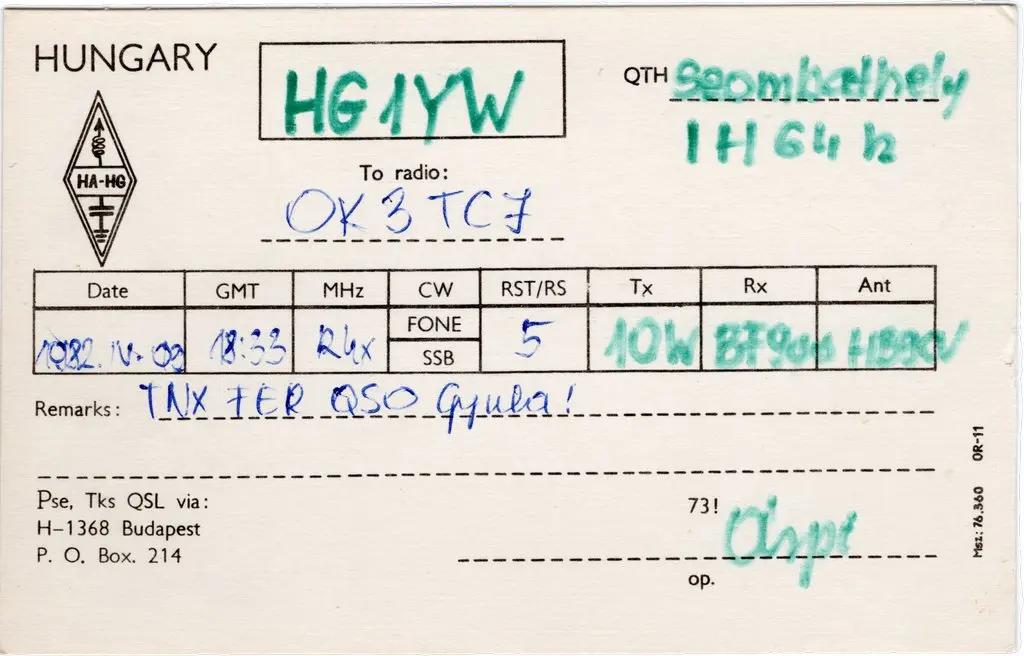 HUNGARY
HG1YW
QTH Szombathely
IH64h
HA-HG
To radio:
OK3TCJ
Date GMT MHz CW RST/RS Tx Rx Ant
FONE
1982. IV. 09 18:33 R4x 5 10W HB9CV
SSB
Remarks: TNX FER QSO Gyula!
Pse, Tks QSL via:
H-1368 Budapest
P. O. Box. 214
73!
op.
Msz: 76.360 OR-11